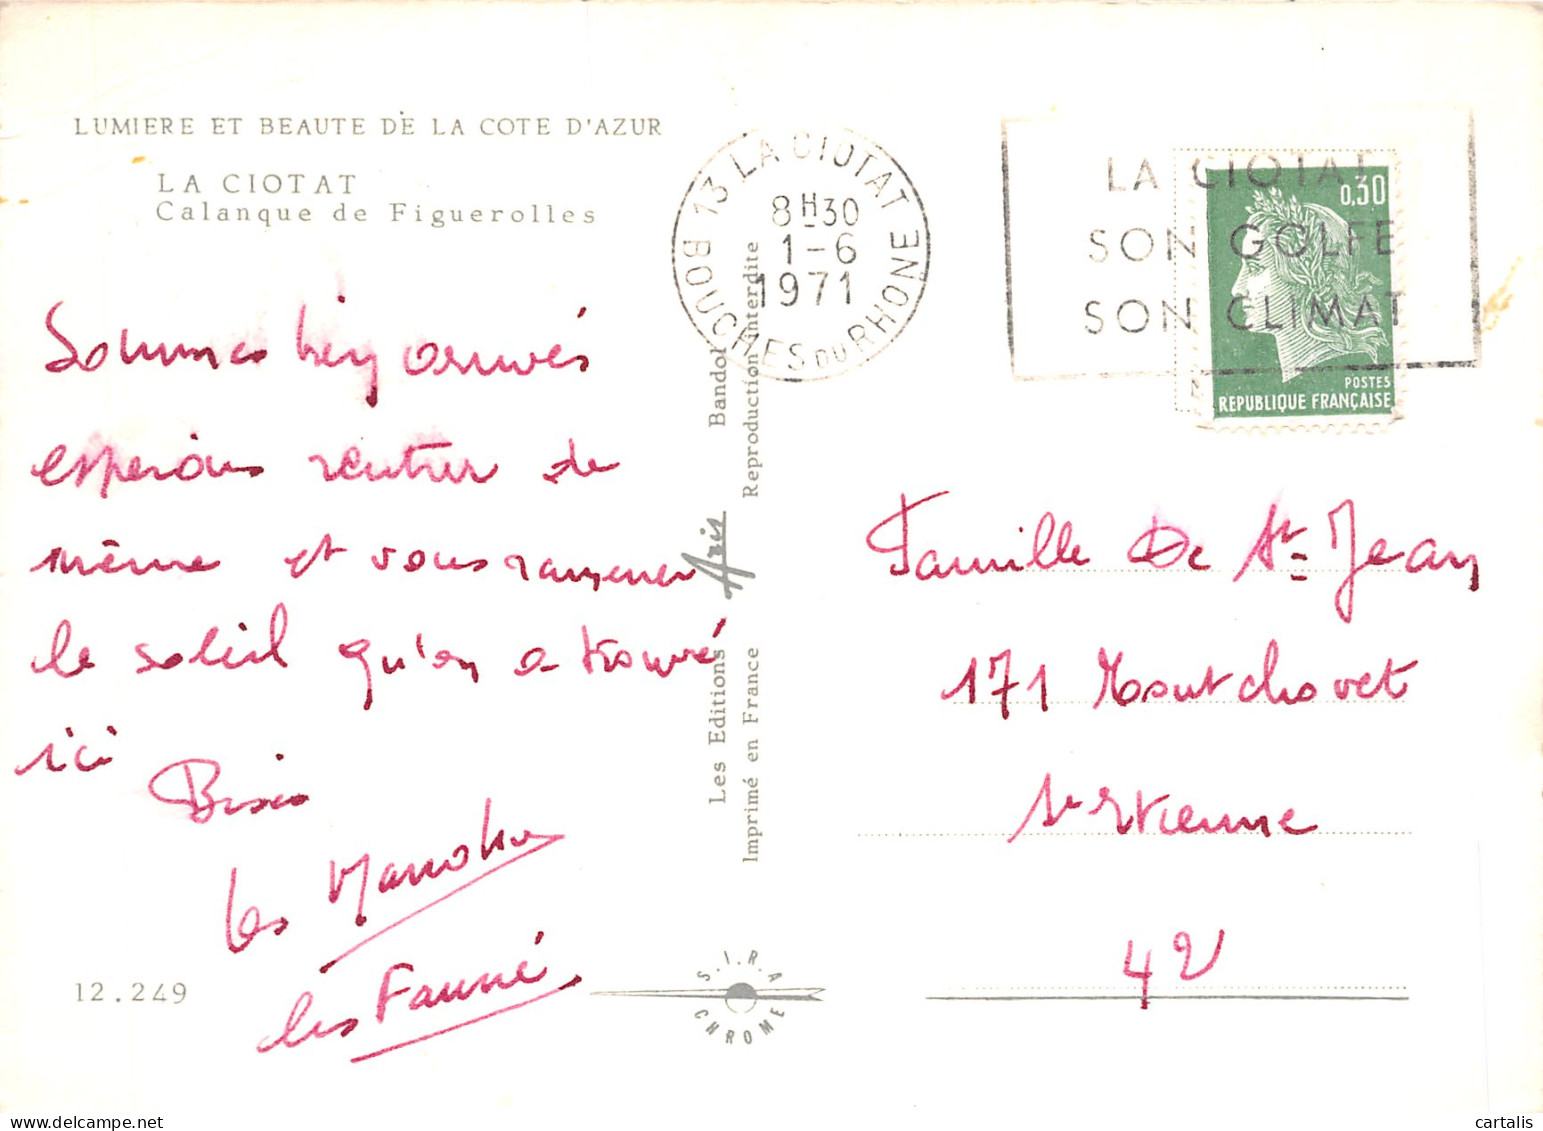 LUMIERE ET BEAUTE DE LA COTE D'AZUR
LA CIOTAT
Calanque de Figuerolles
Sommes bien arrivés
esperons rentrer de
même et vous ramener
le soleil qu'on a trouvé
ici
Bises
les
les Fauré
12.249
Les Editions Aris Bandol
Imprimé en France Reproduction interdite
S.I.R.A
CHROME
13 LA CIOTAT
8H30
1-6
1971
BOUCHES DU RHONE
LA CIOTAT
SON GOLFE
SON CLIMAT
0,30
POSTES
REPUBLIQUE FRANÇAISE
Famille De St-Jean
171 Montchovet
St Etienne
42
cartalis